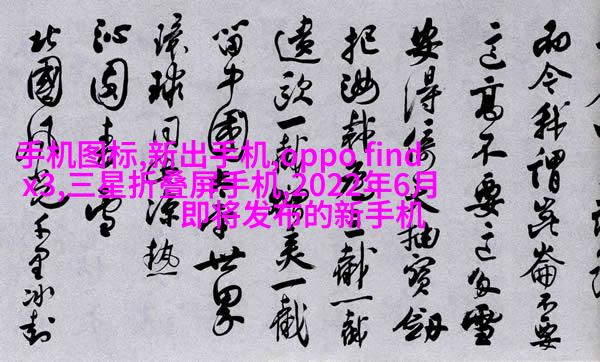 手机图标,新出手机,oppo find
x3,三星折叠屏手机,2022年6月
即将发布的新手机
而今我谓昆仑不要
这高不要这多雪
安得倚天抽宝劍
把汝裁为三截一截
遗欧一截赠美一截
留中國太平世界
环球同此凉热
沁园春雪
北國风光千里冰封